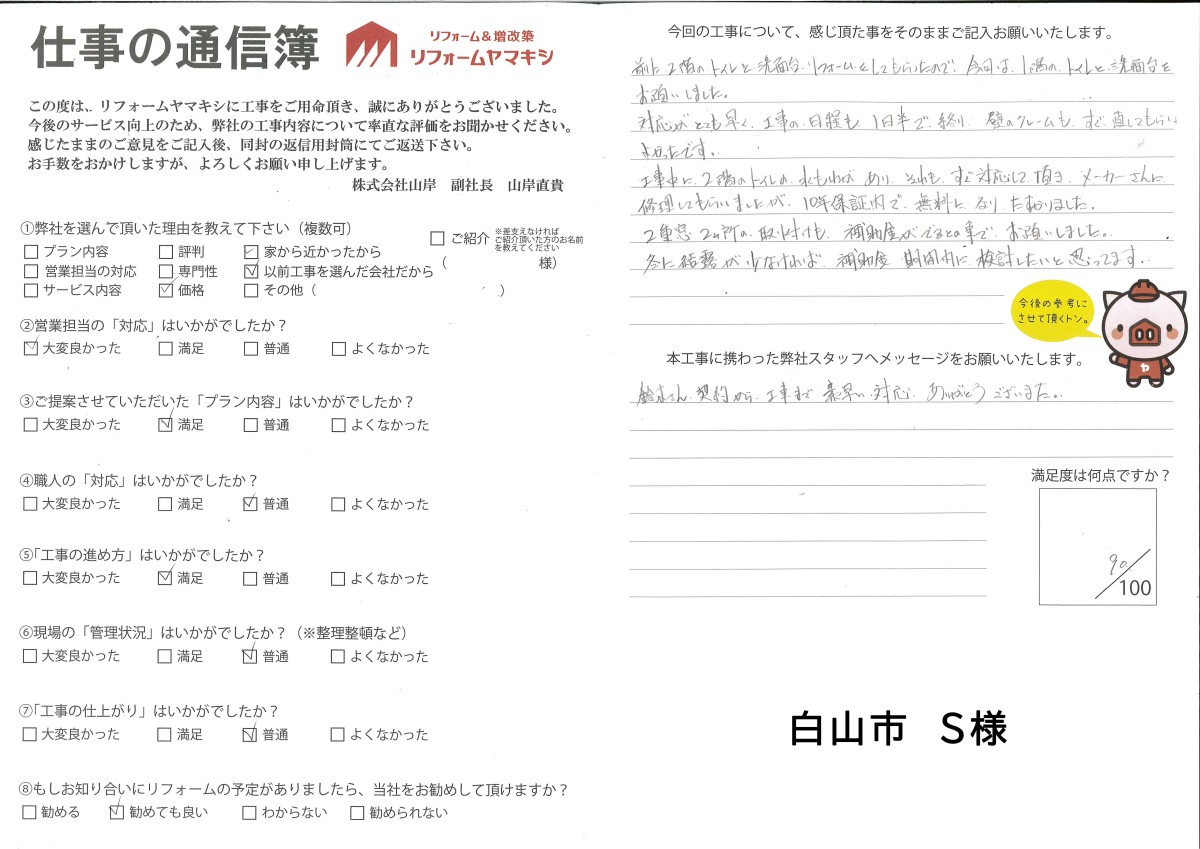 仕事の通信簿
リフォーム&増改築
リフォームヤマキシ
この度は、リフォームヤマキシに工事をご用命頂き、誠にありがとうございました。
今後のサービス向上のため、弊社の工事内容について率直な評価をお聞かせください。
感じたままのご意見をご記入後、同封の返信用封筒にてご返送下さい。
お手数をおかけしますが、よろしくお願い申し上げます。
株式会社山岸 副社長 山岸直貴
①弊社を選んで頂いた理由を教えて下さい(複数可)
□プラン内容 □評判 ☑家から近かったから
□営業担当の対応 □専門性 ☑以前工事を選んだ会社だから
□サービス内容 ☑価格 □その他( )
□ご紹介 ※差支えなければ
ご紹介頂いた方のお名前
を教えてください
( 様)
②営業担当の「対応」はいかがでしたか?
☑大変良かった □満足 □普通 □よくなかった
③ご提案させていただいた「プラン内容」はいかがでしたか?
□大変良かった ☑満足 □普通 □よくなかった
④職人の「対応」はいかがでしたか?
□大変良かった □満足 ☑普通 □よくなかった
⑤「工事の進め方」はいかがでしたか?
□大変良かった ☑満足 □普通 □よくなかった
⑥現場の「管理状況」はいかがでしたか?(※整理整頓など)
□大変良かった □満足 ☑普通 □よくなかった
⑦「工事の仕上がり」はいかがでしたか?
□大変良かった □満足 ☑普通 □よくなかった
⑧もしお知り合いにリフォームの予定がありましたら、当社をお勧めして頂けますか?
□勧める ☑勧めても良い □わからない □勧められない
今回の工事について、感じ頂た事をそのままご記入お願いいたします。
前に2階のトイレと洗面台リフォームをしてもらったので、今回は、1階のトイレと洗面台を
お願いしました。
対応がとても早く、工事の日程も1日半で終り、壁のクレームも、すぐ直してもらい
よかったです。
工事中に、2階のトイレの水もれがあり、それも、すぐ対応して頂き、メーカーさんに
修理してもらいましたが、10年保証内で、無料になり、たすかりました。
2重窓2ヵ所の取り付けも、補助金がでるとの事で、お願いしました。
冬に結露が少なければ、補助金期間内に検討したいと思ってます。
今後の参考に
させて頂くトン。
ヤ
本工事に携わった弊社スタッフへメッセージをお願いいたします。
鈴木さん、契約から、工事まで素早い対応、ありがとうございました。
満足度は何点ですか?
90/100
白山市 S様